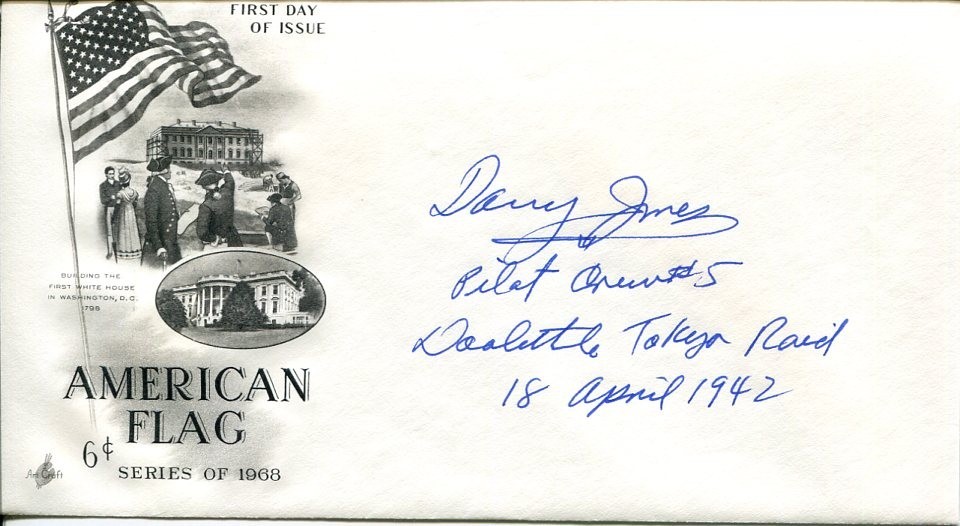 FIRST DAY
OF ISSUE
BUILDING THE
FIRST WHITE HOUSE
IN WASHINGTON, D.C.
1798
AMERICAN
FLAG
6¢
SERIES OF 1968
Art Craft
Davy Jones
Pilot Crew #5
Doolittle Tokyo Raid
18 April 1942